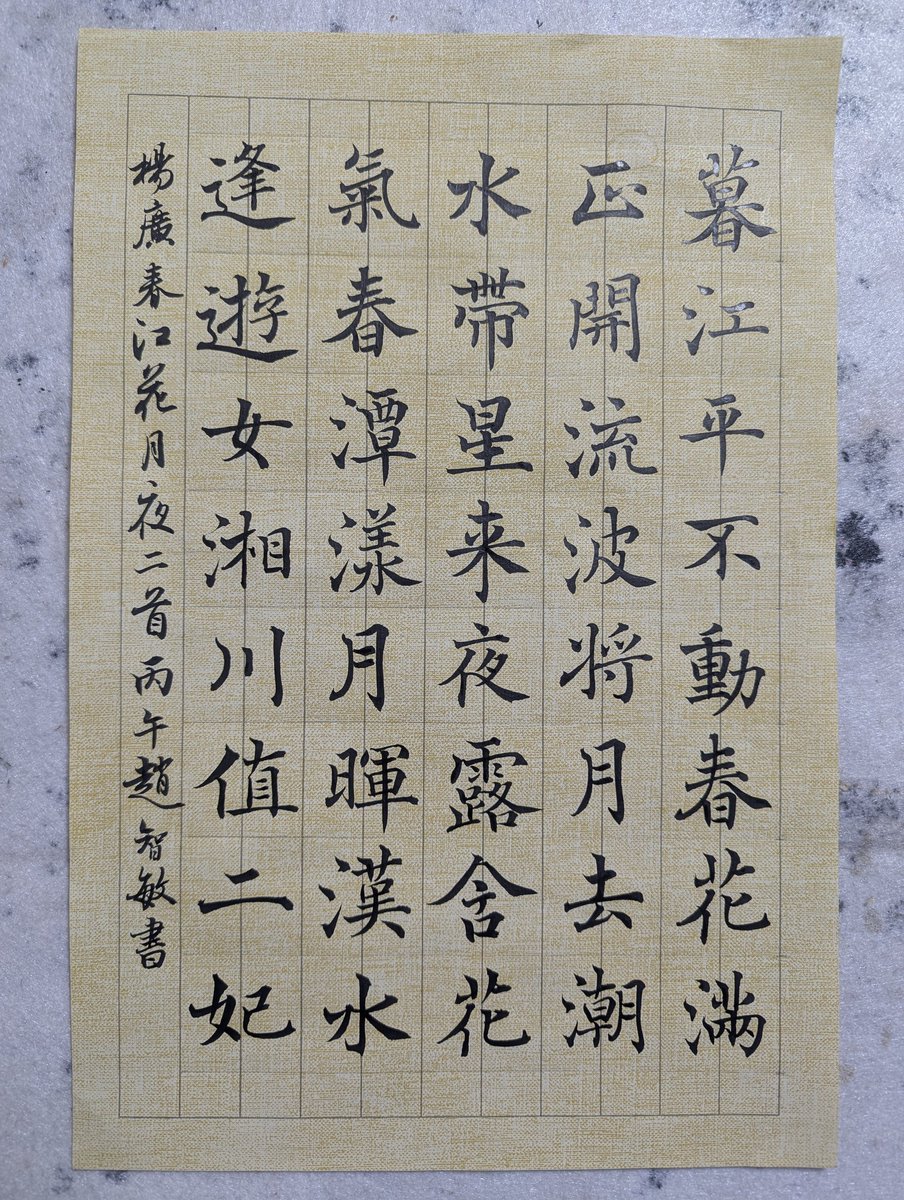 暮江平不動春花滿
正開流波将月去潮
水帶星来夜露含花
氣春潭漾月暉漢水
逢遊女湘川值二妃
楊廣春江花月夜二首丙午趙智敏書